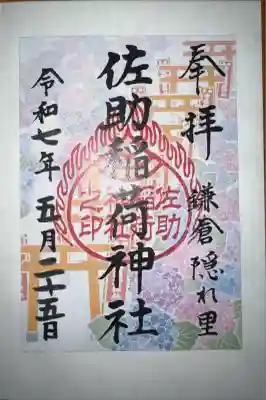 奉拝
鎌倉隠れ里
佐助稲荷神社
佐助稲荷神社之印
令和七年 五月二十五日